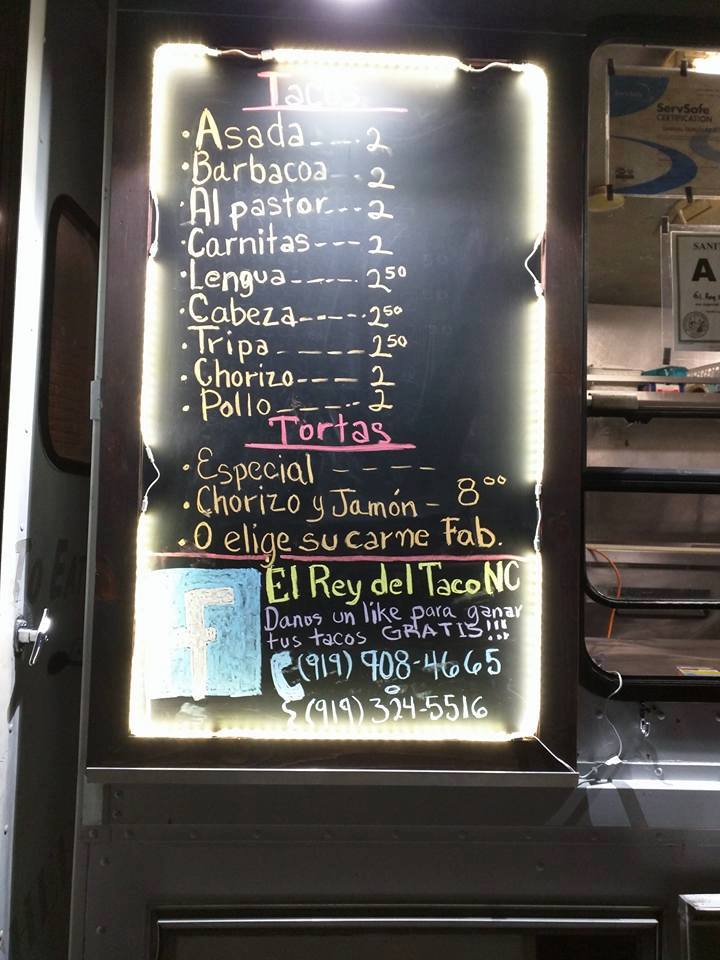 Tacos
· Asada---- 2
· Barbacoa-- 2
· Al pastor--- 2
· Carnitas--- 2
· Lengua----- 2⁵⁰
· Cabeza----- 2⁵⁰
· Tripa ----- 2⁵⁰
· Chorizo---- 2
· Pollo------ 2
Tortas
· Especial ----
· Chorizo y Jamón - 8⁰⁰
· O elige su carne Fab.
f
El Rey del Taco NC
Danos un like para ganar
tus tacos GRATIS!!!
(919) 908-4665
o
(919) 324-5516
ServSafe
CERTIFICATION
SANI
A